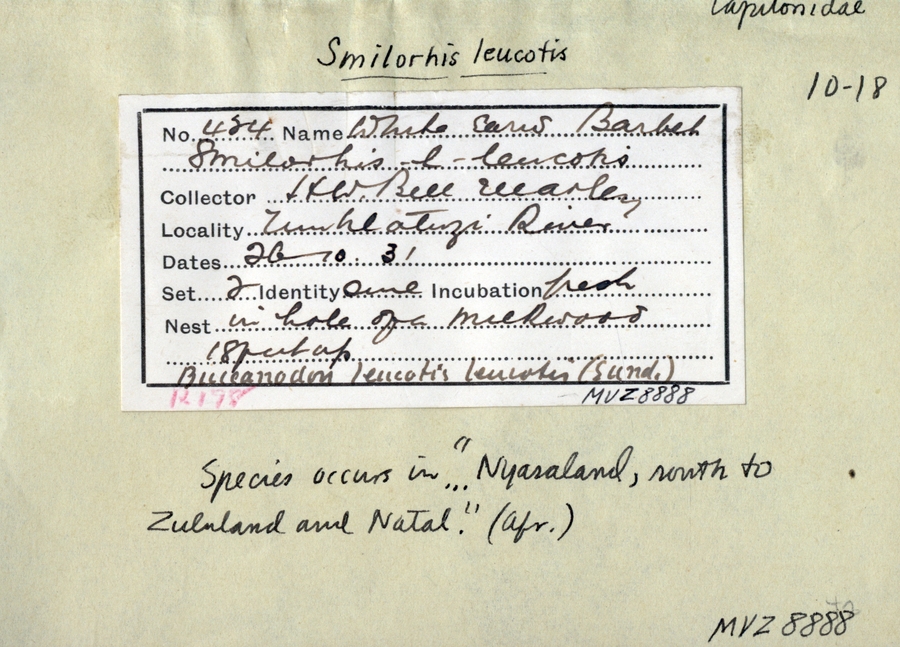 Capitonidae
Smilorhis leucotis
10-18
No. 424 Name White eared Barbet
Smilorhis -l- leucotis
Collector H.W. Bell Marley
Locality Umhlatuzi River
Dates 26 10. 31
Set 2 Identity sure Incubation fresh
Nest in hole of a milkwood
18 feet up
Buccanodon leucotis leucotis (Sund.)
R195
MVZ 8888
Species occurs in "... Nyasaland, south to
Zululand and Natal." (Afr.)
MVZ 8888